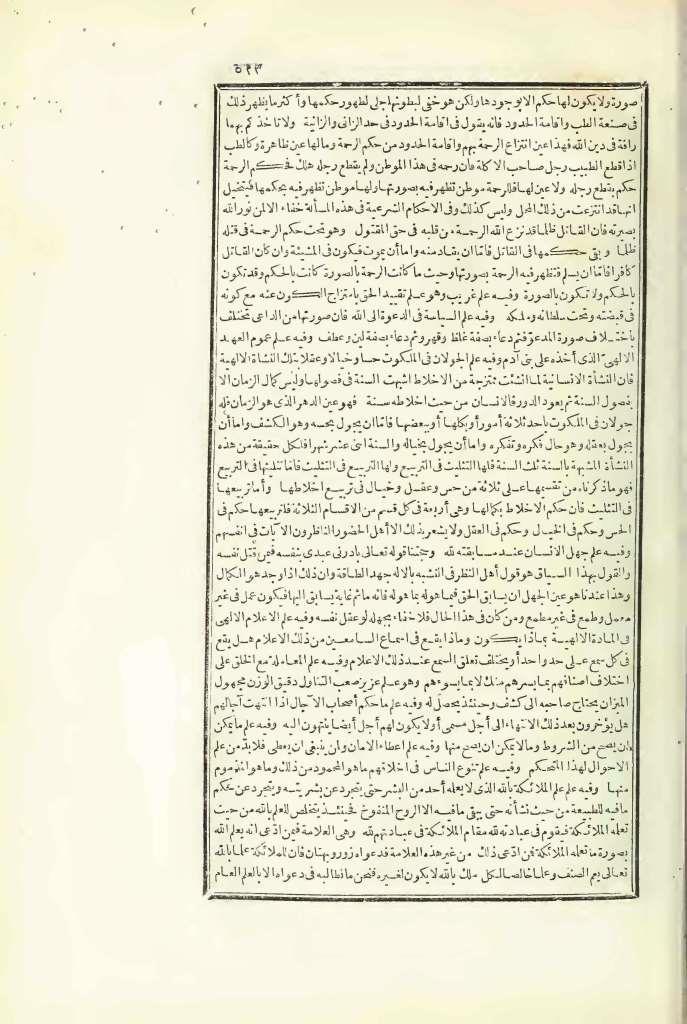 ٥٢٣
صورة ولا يكون لها حكم الا بوجودها ولكن هو خفى لبطونها جلى لظهور حكمها وأكثر ما يظهر ذلك
فى صنعة الطب واقامة الحدود فانه يقول فى اقامة الحدود فى حد الزانى والزانية ولا تأخذكم بهما
رافة فى دين الله فهذا عين انتزاع الرحمة بهم واقامة الحدود من حكم الرحمة وما لها عين ظاهرة وكالطب
اذا قطع الطبيب رجل صاحب الاكلة فان رحمه فى هذا الموطن ولم يقطع رجله هلك فحكم الرحمة
حكم بقطع رجله ولا عين لها فللرحمة موطن تظهر فيه بصورتها ولها موطن تظهر فيه بحكمها فيتخيل
انها قد انتزعت من ذلك المحل وليس كذلك وفى الاحكام الشرعية فى هذه المسألة خفاء الا لمن نور الله
بصيرته فان القاتل ظلما قد نزع الله الرحمة من قلبه فى حق المقتول وهو تحت حكم الرحمة فى قتله
ظلما وبقى حكمها فى القاتل فاما ان يقاد منه واما أن يموت فيكون فى المشيئة وان كان القاتل
كافرا فاما ان يسلم فتظهر فيه الرحمة بصورتها وحيث ما كانت الرحمة بالصورة كانت بالحكم وقد تكون
بالحكم ولا تكون بالصورة وفيه علم غريب وهو علم تقييد الحق بامتزاج الكون عنه مع كونه
فى قبضته وتحت سلطانه وملكه وفيه علم السياسة فى الدعوة الى الله فان صورتها من الداعى تختلف
باختلاف صورة المدعو فثم دعاء بصفة غلظ وقهر وثم دعاء بصفة لين وعطف وفيه علم عموم العهد
الالهى الذى أخذه على بنى آدم وفيه علم الجولان فى الملكوت حسا وخيالا وعقلا بتلك النشأة الالهية
فان النشأة الانسانية لما انشئت ممتزجة من الاخلاط اشبهت السنة فى فصولها وليس كمال الزمان الا
بفصول السنة ثم يعود الدور فالانسان من حيث اخلاطه سنة فهو عين الدهر الذى هو الزمان فله
جولان فى الملكوت بأحد ثلاثة أمور أو بكلها أو ببعضها فاما ان يجول بحسه وهو الكشف واما أن
يجول بعقله وهو حال فكره وتفكره واما أن يجول بخياله والسنة اثنى عشر شهرا فلكل حقيقة من هذه
النشأة المشبهة بالسنة ثلث السنة فلها التثليث فى التربيع ولها التربيع فى التثليث فاما تثليثها فى التربيع
فهو ما ذكرناه من تقسيمها على ثلاثة من حس وعقل وخيال فى تربيع اخلاطها وأما تربيعها
فى التثليث فان حكم الاخلاط بكمالها وهى أربعة فى كل قسم من الاقسام الثلاثة فلتربيعها حكم فى
الحس وحكم فى الخيال وحكم فى العقل ولا يشعر بذلك الا أهل الحضور الناظرون الآيات فى انفسهم
وفيه علم جهل الانسان عند مسابقته لله وجتنا قوله تعالى بادرنى عبدى بنفسه فيمن قتل نفسه
والقول بهذا السباق هو قول أهل النظر فى التشبه بالاله جهد الطاقة وان ذلك اذا وجد هو الكمال
وهذا عندنا هو عين الجهل ان يسابق الحق فيما هو له بما هو له فانه ما ثم غاية يسابق اليها فيكون عمل فى غير
معمل وطمع فى غير مطمع ومن كان فى هذا الحال فلا خفاء بجهله لو عقل نفسه وفيه علم الاعلام الالهى
فى المادة الالهية بماذا يكون وماذا يقع فى اسماع السامعين من ذلك الاعلام هل يقع
فى كل سمع على حد واحد أو يختلف تعلق السمع عند ذلك الاعلام وفيه علم المعاملة مع الخلق على
اختلاف اصنافهم بما يسرهم منك لا بما يسوءهم وهو علم عزيز صعب التناول دقيق الوزن مجهول
الميزان يحتاج صاحبه الى كشف وحينئذ يحصل له وفيه علم ما حكم أصحاب الآجال اذا انتهت آجالهم
هل يؤخرون بعد ذلك الانتهاء الى أجل مسمى أو لا يكون لهم أجل أيضا ينتهون اليه وفيه علم ما يمكن
ان يصح من الشروط وما لا يمكن ان يصح منها وفيه علم اعطاء الامان ولمن ينبغى ان يعطى فلا بد من علم
الاحوال لهذا المتحكم وفيه علم تنوع الناس فى اخلاقهم ما هو المحمود من ذلك وما هو المذموم
منها وفيه علم علم الملائكة بالله الذى لا يعلمه أحد من البشر حتى يتجرد عن بشريته ويتجرد عن حكم
ما فيه للطبيعة من حيث نشأته حتى يبقى ما فيه الا الروح المنفوخ فحينئذ يتخلص للعلم بالله من حيث
تعلمه الملائكة فيقوم فى عبادته لله مقام الملائكة فى عبادتهم لله وهى العلامة فيمن ادعى انه يعلم الله
بصورة ما تعلمه الملائكة فمن ادعى ذلك من غير هذه العلامة فدعواه زور وبهتان فان للملائكة علما بالله
تعالى يعم الصنف وعلما خالصا لكل ملك بالله لا يكون لغيره فنحن ما نطالبه فى دعواه الا بالعلم العام